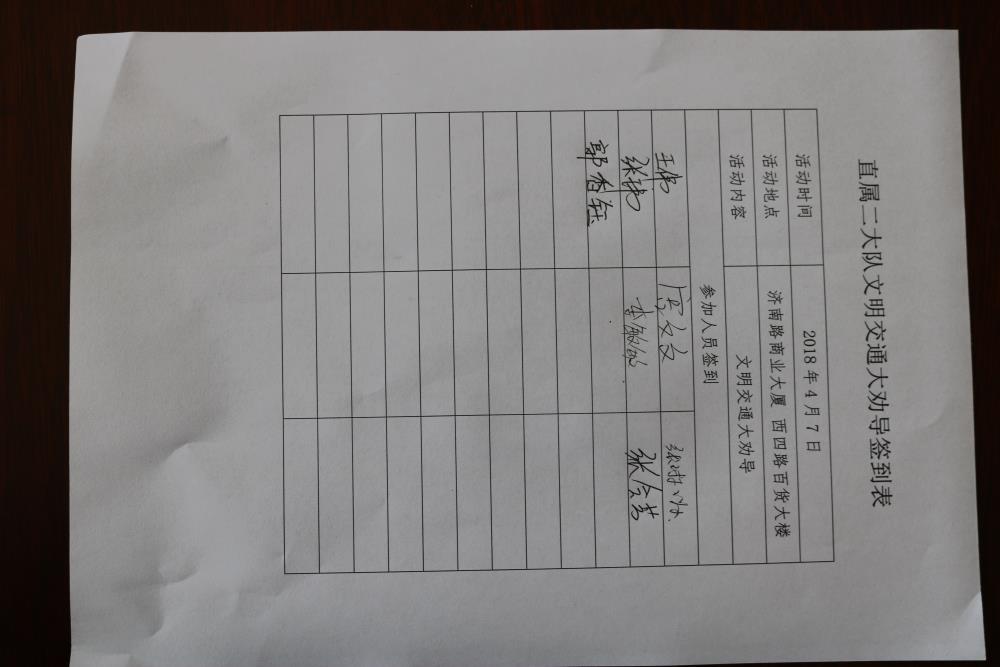 直属二大队文明交通大劝导签到表
活动时间 2018年4月7日
活动地点 济南路商业大厦 西四路百货大楼
活动内容 文明交通大劝导
参加人员签到
王伟
张会芳
郭香钰